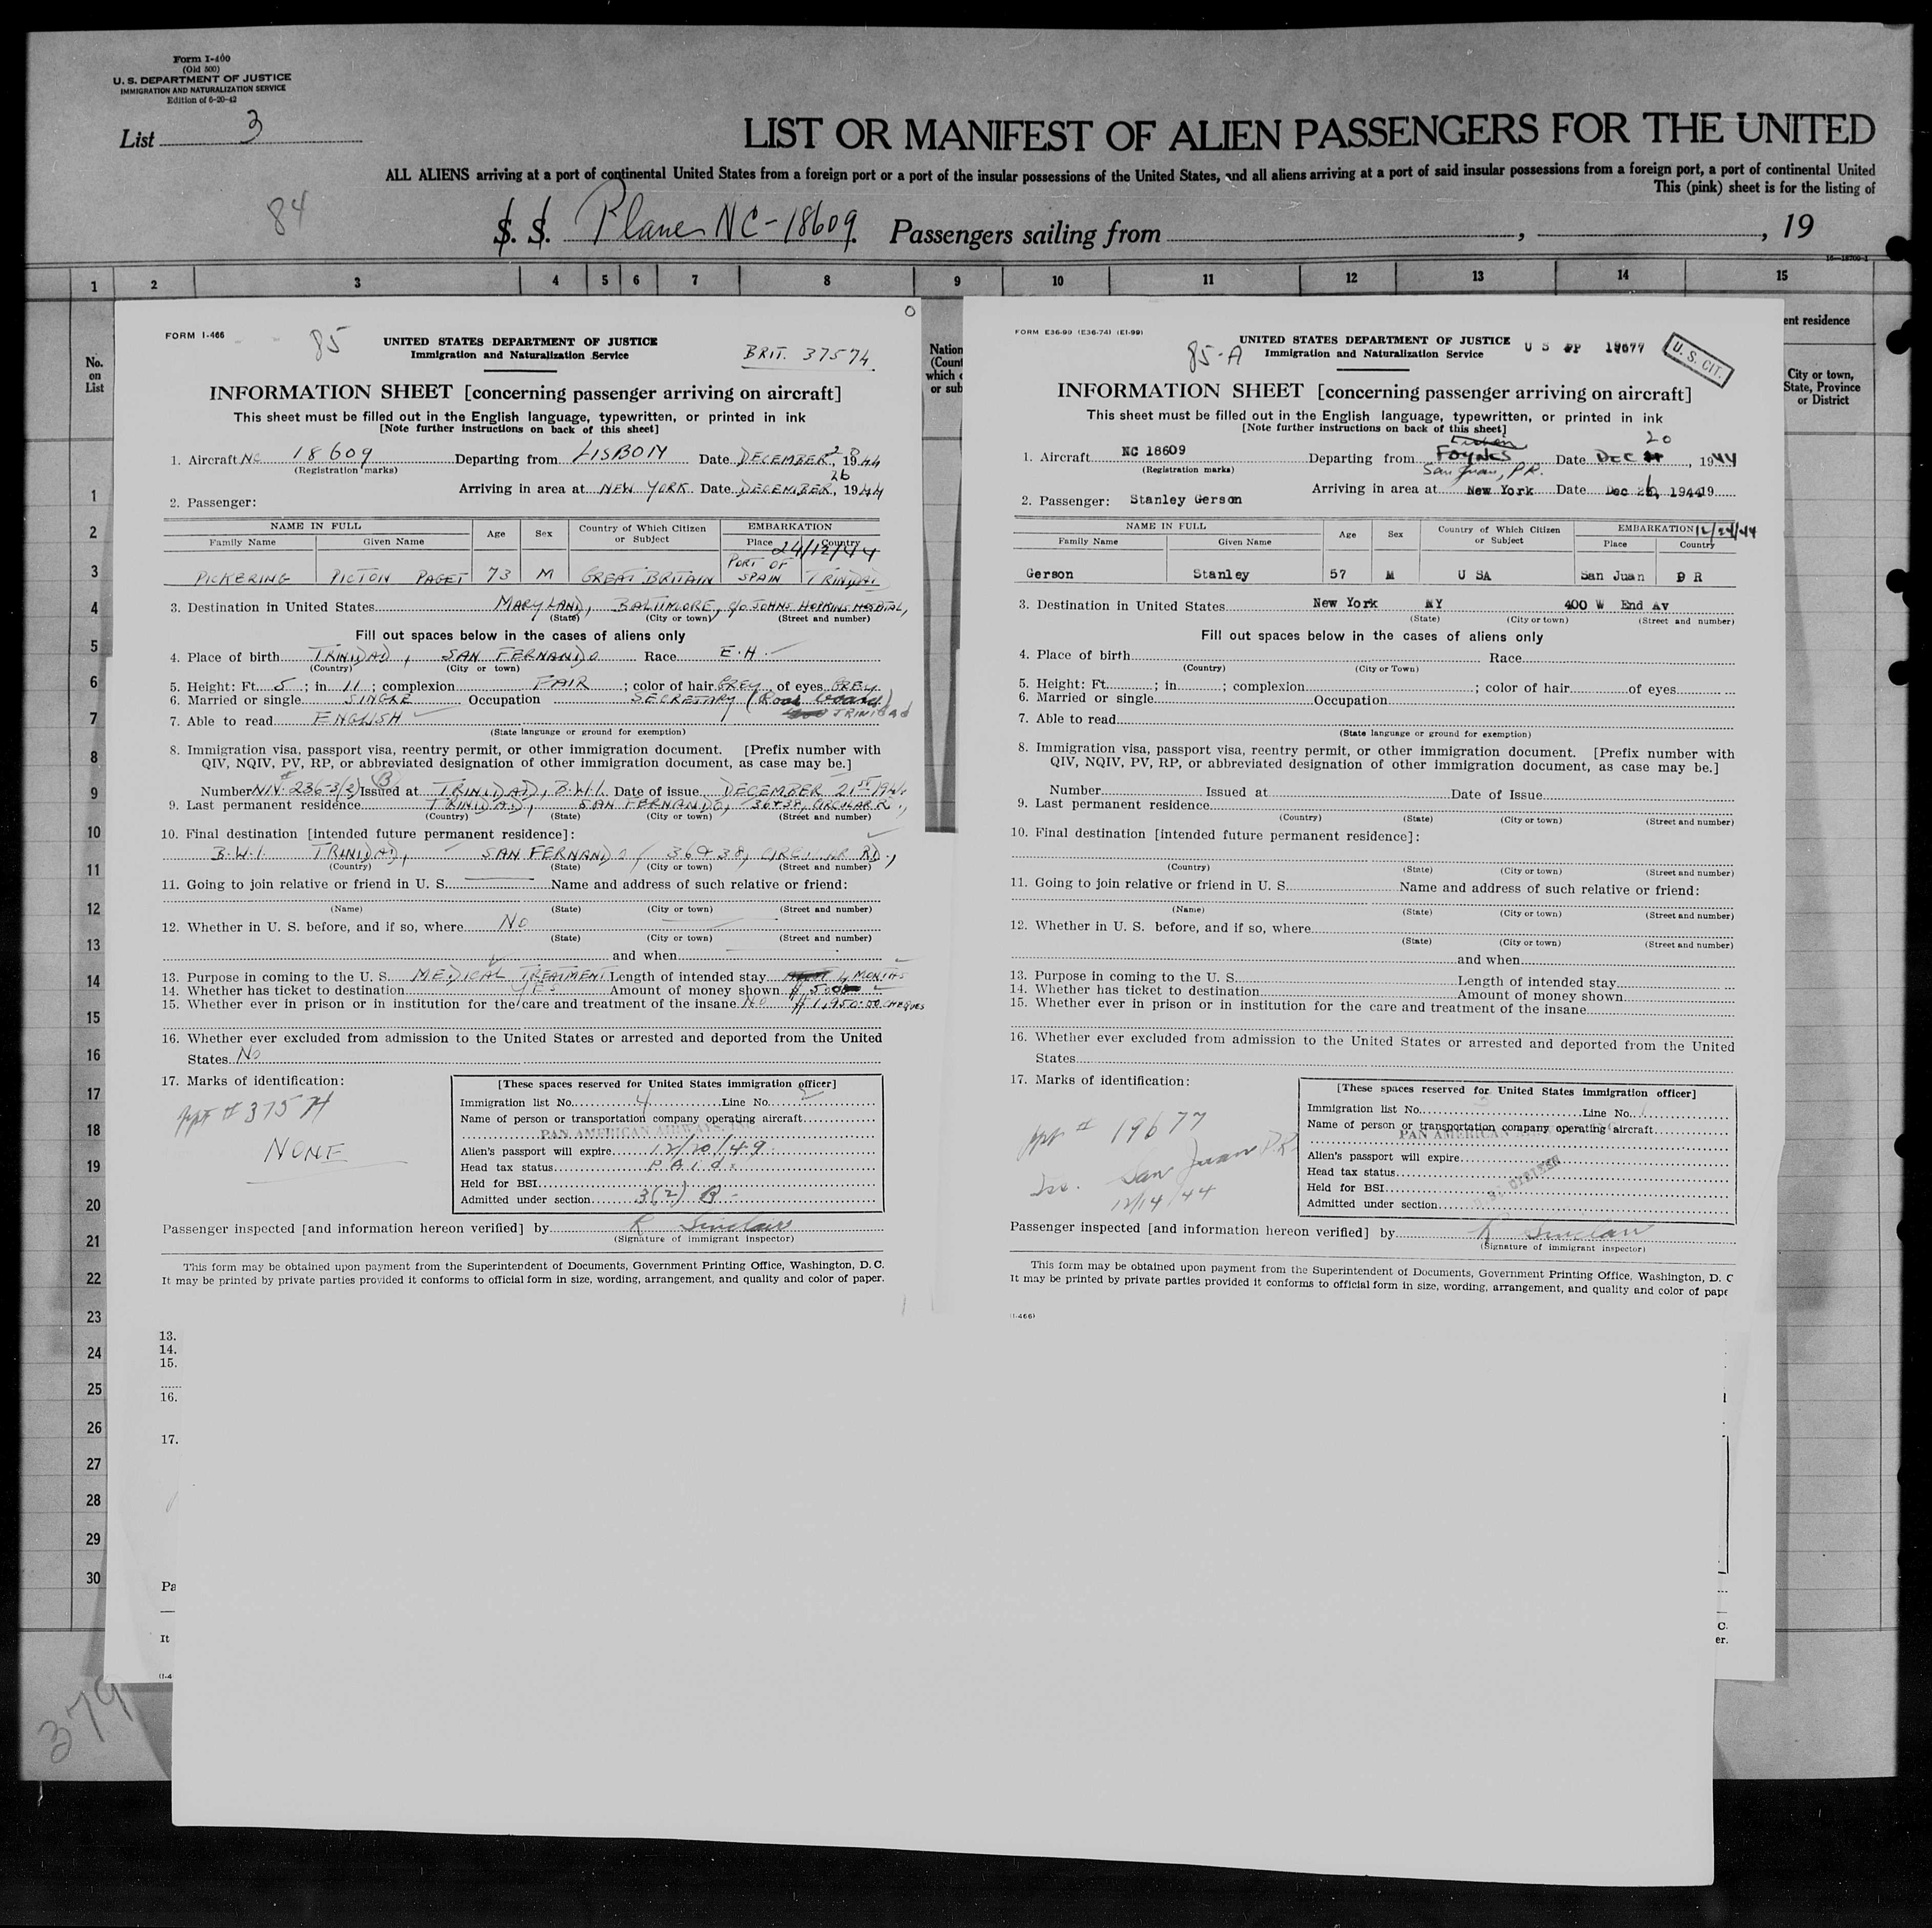 Form I-400
(Old 500)
U. S. DEPARTMENT OF JUSTICE
IMMIGRATION AND NATURALIZATION SERVICE
Edition of 6-20-42
List 3
LIST OR MANIFEST OF ALIEN PASSENGERS FOR THE UNITED
ALL ALIENS arriving at a port of continental United States from a foreign port or a port of the insular possessions of the United States, and all aliens arriving at a port of said insular possessions from a foreign port, a port of continental United
This (pink) sheet is for the listing of
84
S. S. Plane NC-18609 Passengers sailing from , , 19
1 2 3 4 5 6 7 8 9 10 11 12 13 14 15
No. on List
Nation
(Count
which c
or sub
ent residence
City or town,
State, Province
or District
1
2
3
4
5
6
7
8
9
10
11
12
13
14
15
16
17
18
19
20
21
22
23
24
25
26
27
28
29
30
FORM I-466
85
UNITED STATES DEPARTMENT OF JUSTICE
Immigration and Naturalization Service
BRIT. 37574
INFORMATION SHEET [concerning passenger arriving on aircraft]
This sheet must be filled out in the English language, typewritten, or printed in ink
[Note further instructions on back of this sheet]
1. Aircraft NC 18609 Departing from LISBON Date DECEMBER 23, 1944
(Registration marks)
Arriving in area at NEW YORK Date DECEMBER 26, 1944
2. Passenger:
NAME IN FULL Age Sex Country of Which Citizen or Subject EMBARKATION
Family Name Given Name Place Country
24/12/44
PICKERING PICTON PAGET 73 M GREAT BRITAIN PORT OF SPAIN TRINIDAD
3. Destination in United States MARYLAND, BALTIMORE, c/o JOHNS HOPKINS HOSPITAL,
(State) (City or town) (Street and number)
Fill out spaces below in the cases of aliens only
4. Place of birth TRINIDAD, SAN FERNANDO Race E.H.
(Country) (City or town)
5. Height: Ft. 5; in 11; complexion FAIR; color of hair GREY of eyes GREY
6. Married or single SINGLE Occupation SECRETARY (Road Board)
TRINIDAD
7. Able to read ENGLISH
(State language or ground for exemption)
8. Immigration visa, passport visa, reentry permit, or other immigration document. [Prefix number with
QIV, NQIV, PV, RP, or abbreviated designation of other immigration document, as case may be.]
Number NIV. 236-3(2)(B) Issued at TRINIDAD, B.W.I. Date of issue DECEMBER 21st 1944
9. Last permanent residence TRINIDAD, SAN FERNANDO, 36+38, CIRCULAR R.,
(Country) (State) (City or town) (Street and number)
10. Final destination [intended future permanent residence]:
B.W.I. TRINIDAD, SAN FERNANDO, 36+38, CIRCULAR RD.,
(Country) (State) (City or town) (Street and number)
11. Going to join relative or friend in U. S. Name and address of such relative or friend:
(Name) (State) (City or town) (Street and number)
12. Whether in U. S. before, and if so, where No
(State) (City or town) (Street and number)
and when
13. Purpose in coming to the U. S. MEDICAL TREATMENT Length of intended stay MONTHS
14. Whether has ticket to destination YES Amount of money shown $ 50
15. Whether ever in prison or in institution for the care and treatment of the insane No $1,950.00 CHEQUES
16. Whether ever excluded from admission to the United States or arrested and deported from the United
States No
17. Marks of identification:
NONE
[These spaces reserved for United States immigration officer]
Immigration list No. 4 Line No. 2
Name of person or transportation company operating aircraft
PAN AMERICAN AIRWAYS, INC
Alien's passport will expire 12/20/49
Head tax status Paid
Held for BSI
Admitted under section 3(2) B
Passenger inspected [and information hereon verified] by R Sinclair
(Signature of immigrant inspector)
This form may be obtained upon payment from the Superintendent of Documents, Government Printing Office, Washington, D. C.
It may be printed by private parties provided it conforms to official form in size, wording, arrangement, and quality and color of paper.
13.
14.
15.
16.
17.
Pa
It
(I-4
379
FORM E36-99 (E36-74) (E1-99)
85-A
UNITED STATES DEPARTMENT OF JUSTICE
Immigration and Naturalization Service
U S PP 19677
U. S. CIT.
INFORMATION SHEET [concerning passenger arriving on aircraft]
This sheet must be filled out in the English language, typewritten, or printed in ink
[Note further instructions on back of this sheet]
1. Aircraft NC 18609 Departing from Foynes Date DEC 20, 1944
(Registration marks) San Juan, P.R.
Arriving in area at New York Date Dec 26, 1944 19
2. Passenger: Stanley Gerson
NAME IN FULL Age Sex Country of Which Citizen or Subject EMBARKATION 12/24/44
Family Name Given Name Place Country
Gerson Stanley 57 M U SA San Juan P R
3. Destination in United States New York NY 400 W End Av
(State) (City or town) (Street and number)
Fill out spaces below in the cases of aliens only
4. Place of birth Race
(Country) (City or Town)
5. Height: Ft. ; in ; complexion ; color of hair of eyes
6. Married or single Occupation
7. Able to read
(State language or ground for exemption)
8. Immigration visa, passport visa, reentry permit, or other immigration document. [Prefix number with
QIV, NQIV, PV, RP, or abbreviated designation of other immigration document, as case may be.]
Number Issued at Date of Issue
9. Last permanent residence
(Country) (State) (City or town) (Street and number)
10. Final destination [intended future permanent residence]:
(Country) (State) (City or town) (Street and number)
11. Going to join relative or friend in U. S. Name and address of such relative or friend:
(Name) (State) (City or town) (Street and number)
12. Whether in U. S. before, and if so, where
(State) (City or town) (Street and number)
and when
13. Purpose in coming to the U. S. Length of intended stay
14. Whether has ticket to destination Amount of money shown
15. Whether ever in prison or in institution for the care and treatment of the insane
16. Whether ever excluded from admission to the United States or arrested and deported from the United
States
17. Marks of identification:
ppt # 19677
Iss. San Juan P.R.
12/14/44
[These spaces reserved for United States immigration officer]
Immigration list No. Line No. 1
Name of person or transportation company operating aircraft
PAN AMERICAN
Alien's passport will expire
Head tax status
Held for BSI
U.S. CITIZEN
Admitted under section
Passenger inspected [and information hereon verified] by R Sinclair
(Signature of immigrant inspector)
This form may be obtained upon payment from the Superintendent of Documents, Government Printing Office, Washington, D. C
It may be printed by private parties provided it conforms to official form in size, wording, arrangement, and quality and color of pape
(I-466)
C.
er.